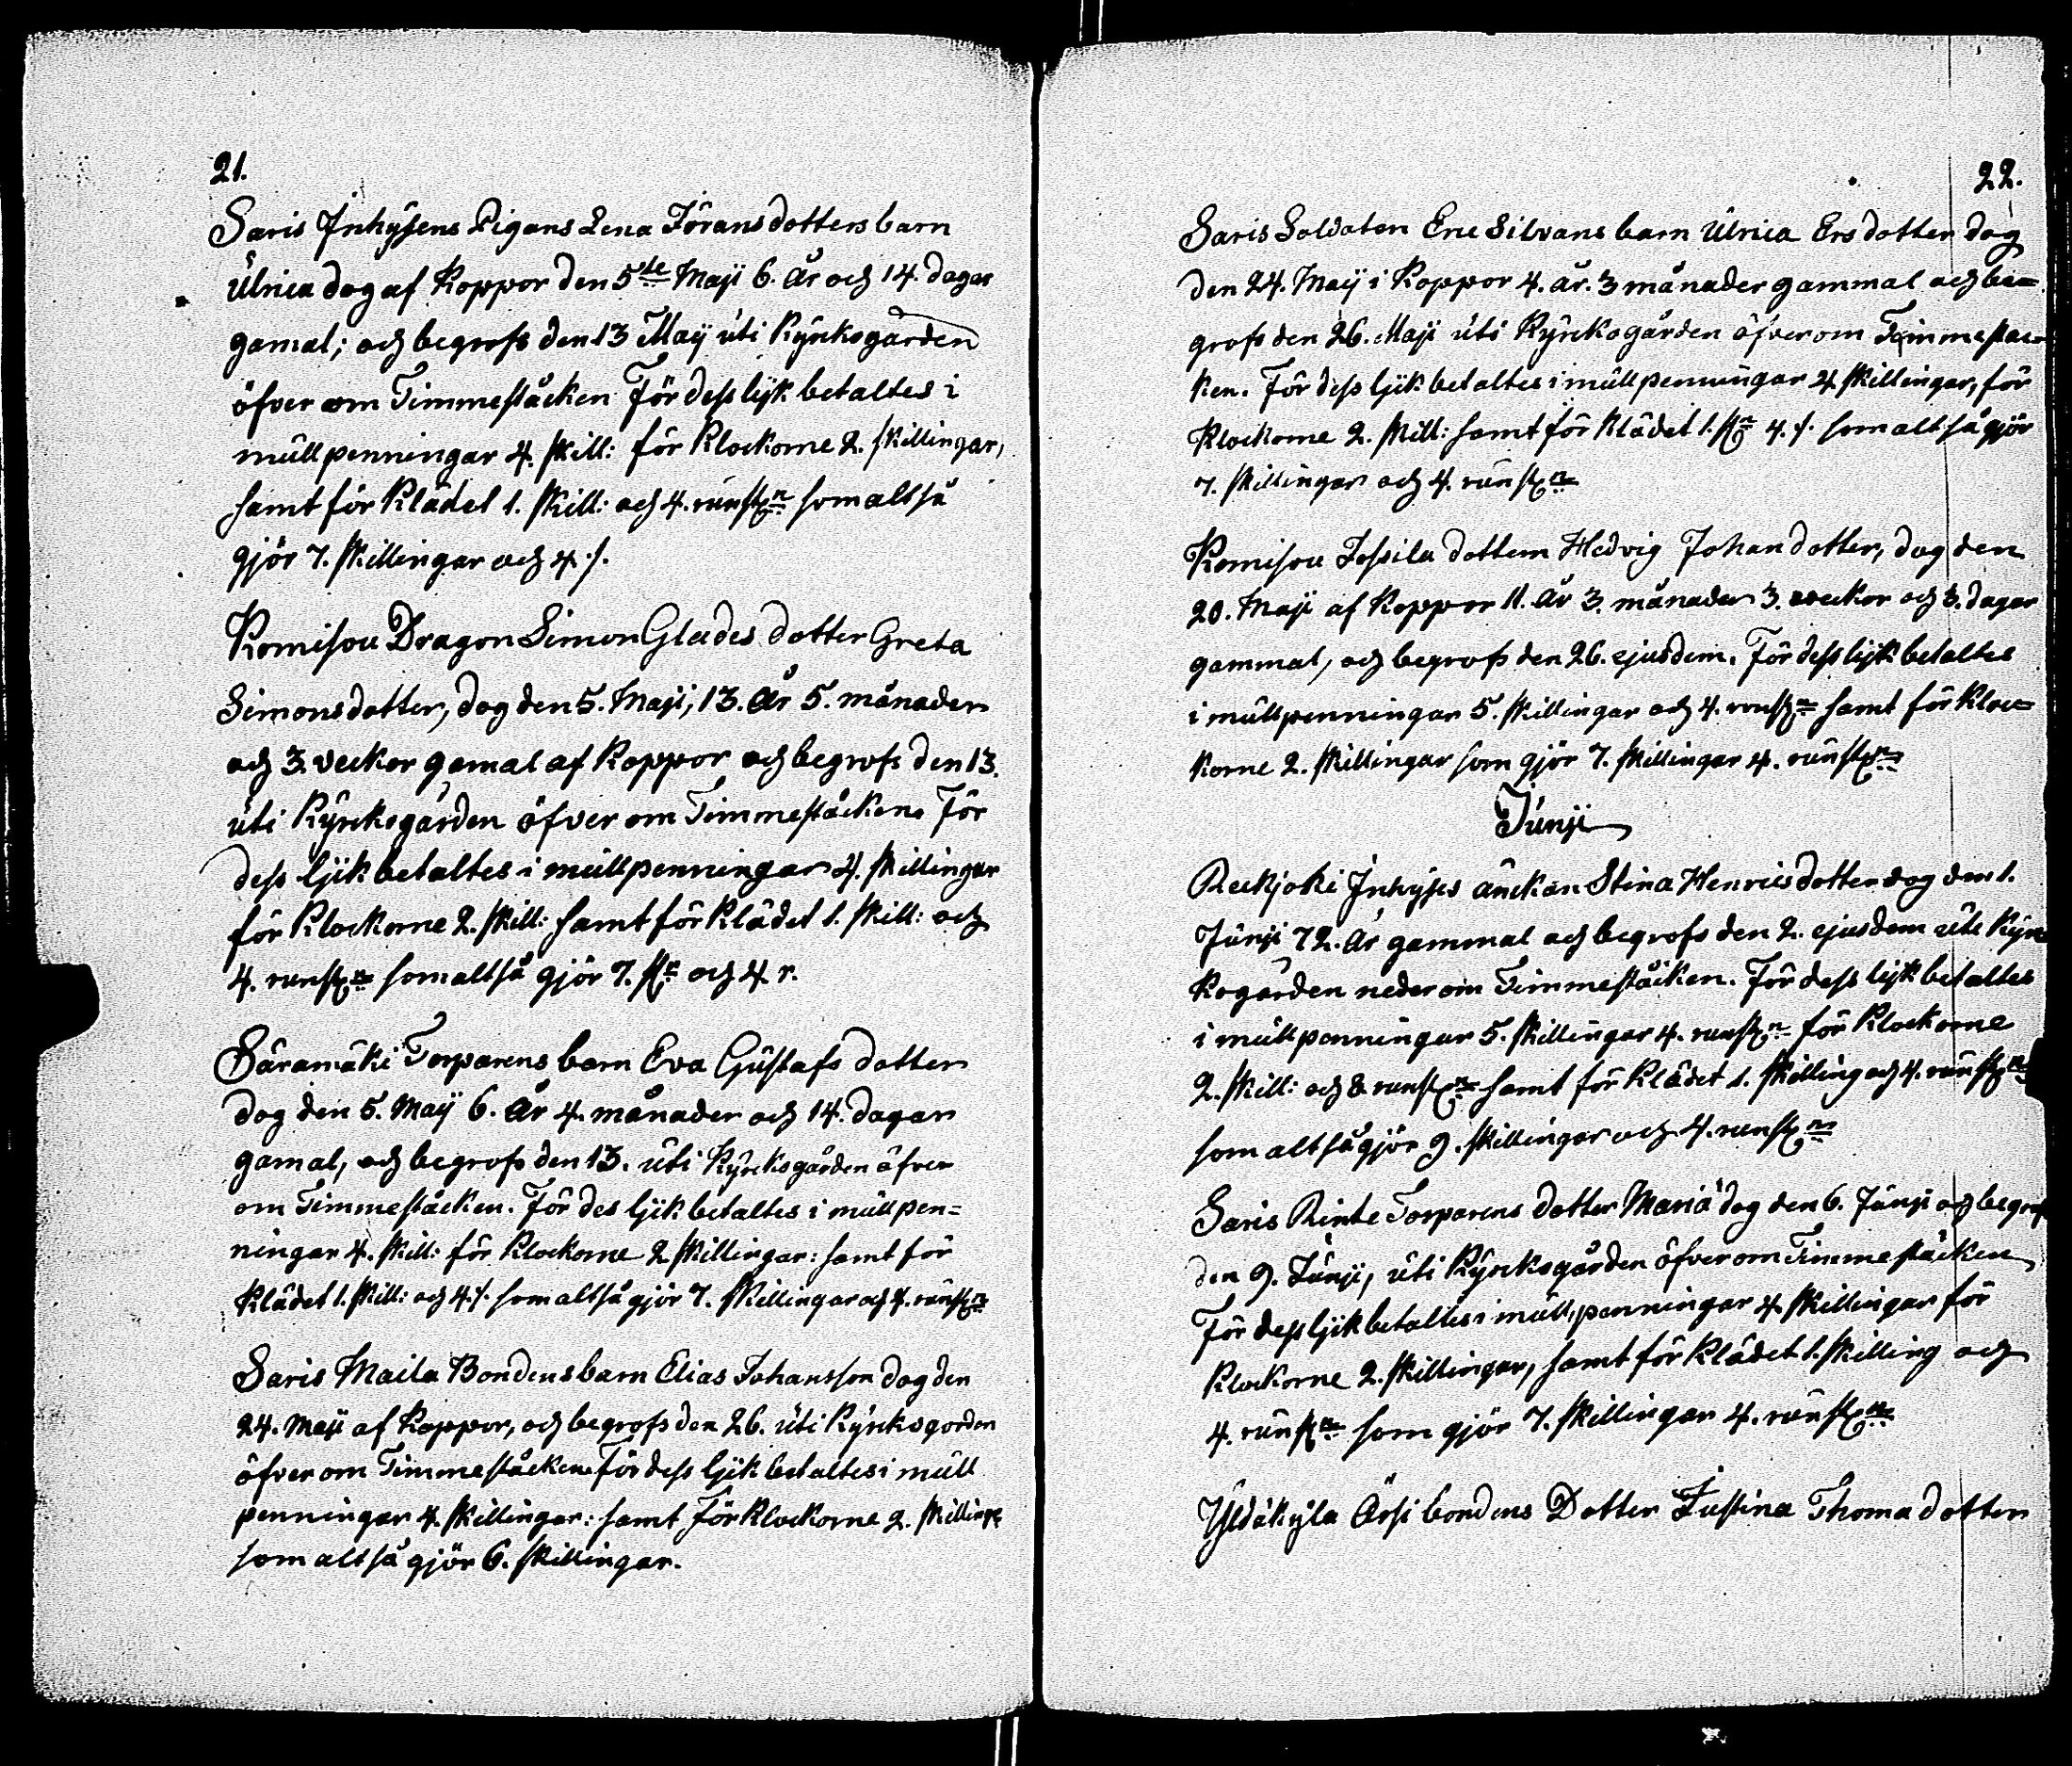 21.
Saris Inhÿsens Pigans Lena Jöransdotters barn
Ulrica dog af Koppor den 5te Maji 6. År och 14. dagar
gamal; och begrofs den 13 Maÿ uti Kÿrkogården
öfver om Timmeståcken För dess lijk betaltes i
mullpenningar 4. skill: för Klockorne 2. skillingar,
samt för Klädet 1. skill: och 4. runstn som altså
gjör 7. skillingar och 4 :/.
Komisou Dragon Simon Glades dotter Greta
Simonsdotter, dog den 5. Maji, 13. År 5. månader
och 3. veckor gamal af Koppor och begrofs den 13.
uti Kÿrkogården öfver om Timmeståcken. För
dess lijk betaltes i mullpenningar 4. skillingar
för Klockorne 2. skill: samt för Klädet 1. skill: och
4. runstn som altså gjör 7. skn och 4 r.
Säramäki Torparens barn Eva Gustafs dotter
dog den 5. Maÿ 6. År 4. månader och 14. dagar
gamal, och begrofs den 13. uti Kÿrkogården öfver
om Timmeståcken. För des lijk betaltes i mullpen=
ningar 4. skill: för Klockorne 2 skillingar: samt för
Klädet 1. skill: och 4 :/. som altså gjör 7. skillingar och 4. runstn
Saris Maila Bondens barn Elias Johansson dog den
24. Maji af Koppor, och begrofs den 26. uti Kÿrkogorden
öfver om Timmeståcken. För dess lijk betaltes i mull
penningar 4. skillingar: samt för klockorne 2. skillingr
som altså gjör 6. skillingar.
22.
Saris Soldaten Eric Silvans barn Ulrica Ersdotter dog
den 24. Maÿ i Koppor 4. år. 3 månader gammal och be=
grofs den 26. Maji uti Kÿrkogården öfver om Timmestoc
ken. För dess lijk betaltes i mullpenningar 4 skillingar, för
Klockorne 2. skill: samt för Klädet 1. skn 4 :/. som altså gjör
7. skillingar och 4. runstn
Komisou Jossila dottern Hedvig Johandotter, dog den
20. Maji af Koppor 11. År 3. månader 3. veckor och 3. dagar
gammal, och begrofs den 26. ejusdem. För dess lijk betaltes
i mullpenningar 5. skillingar och 4. runstn samt för Kloc=
korne 2. skillingar som gjör 7. skillingar 4. runstn
Junji
Reckjoki Inhÿses änckan Stina Henricsdotter dog den 1.
Junji 72. År gammal och begrofs den 2. ejusdem uti Kÿr
kogården neder om Timmeståcken. För dess lijk betaltes
i mullpenningar 5. skillingar 4. runstn för Klockorne
2. skill: och 8 runstn samt för Klädet 1. skilling och 4. runstn
som altså gjör 9. skillingar och 4. runstn
Saris Rinte Torparens dotter Maria dog den 6. Junji och begrof
den 9. Junji, uti Kÿrkogården öfver om Timmeståcken
För dess lijk betaltes i mullpenningar 4 skillingar för
Klockorne 2. skillingar, samt för Klädet 1. skilling och
4. runstn som gjör 7. skillingar 4. runstn
Yldäkÿla Ässi bondens Dotter Justina Thomadotter